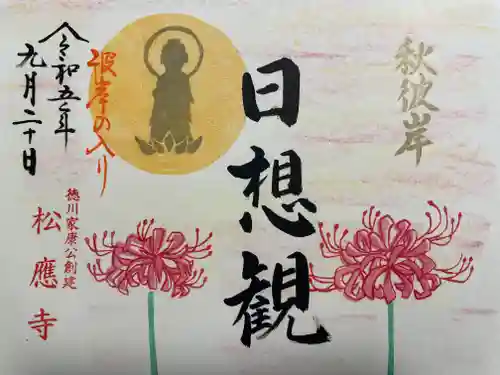 秋彼岸
日想観
彼岸の入り
令和五年
九月二十日
徳川家康公創建
松應寺